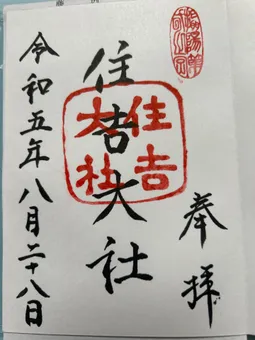 奉拝
住吉大社
住吉大社
令和五年八月二十八日